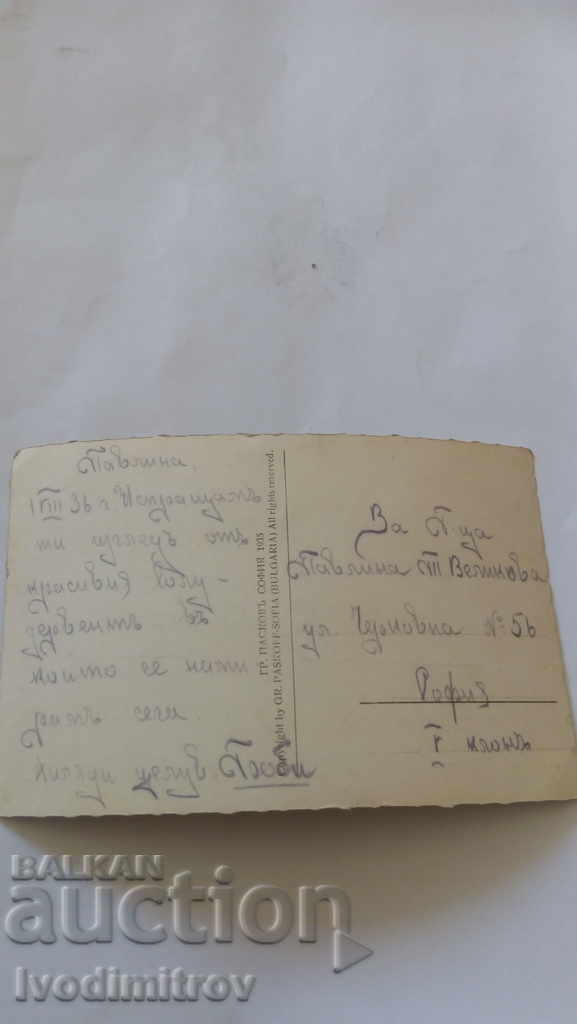 Павлина,
1 VIII 36 г. Испращамъ
ти изгледъ отъ
красивия
дервентъ въ
който се нами
рамъ сега.
Хиляди целув.
ГР. ПАСКОВЪ СОФИЯ 1935
Copyright by GR. PASKOFF-SOFIA (BULGARIA) All rights reserved.
За Г-ца
Павлина П Великова
ул. Черковна № 56
София
V клонъ
BALKAN
auction
Ivodimitrov